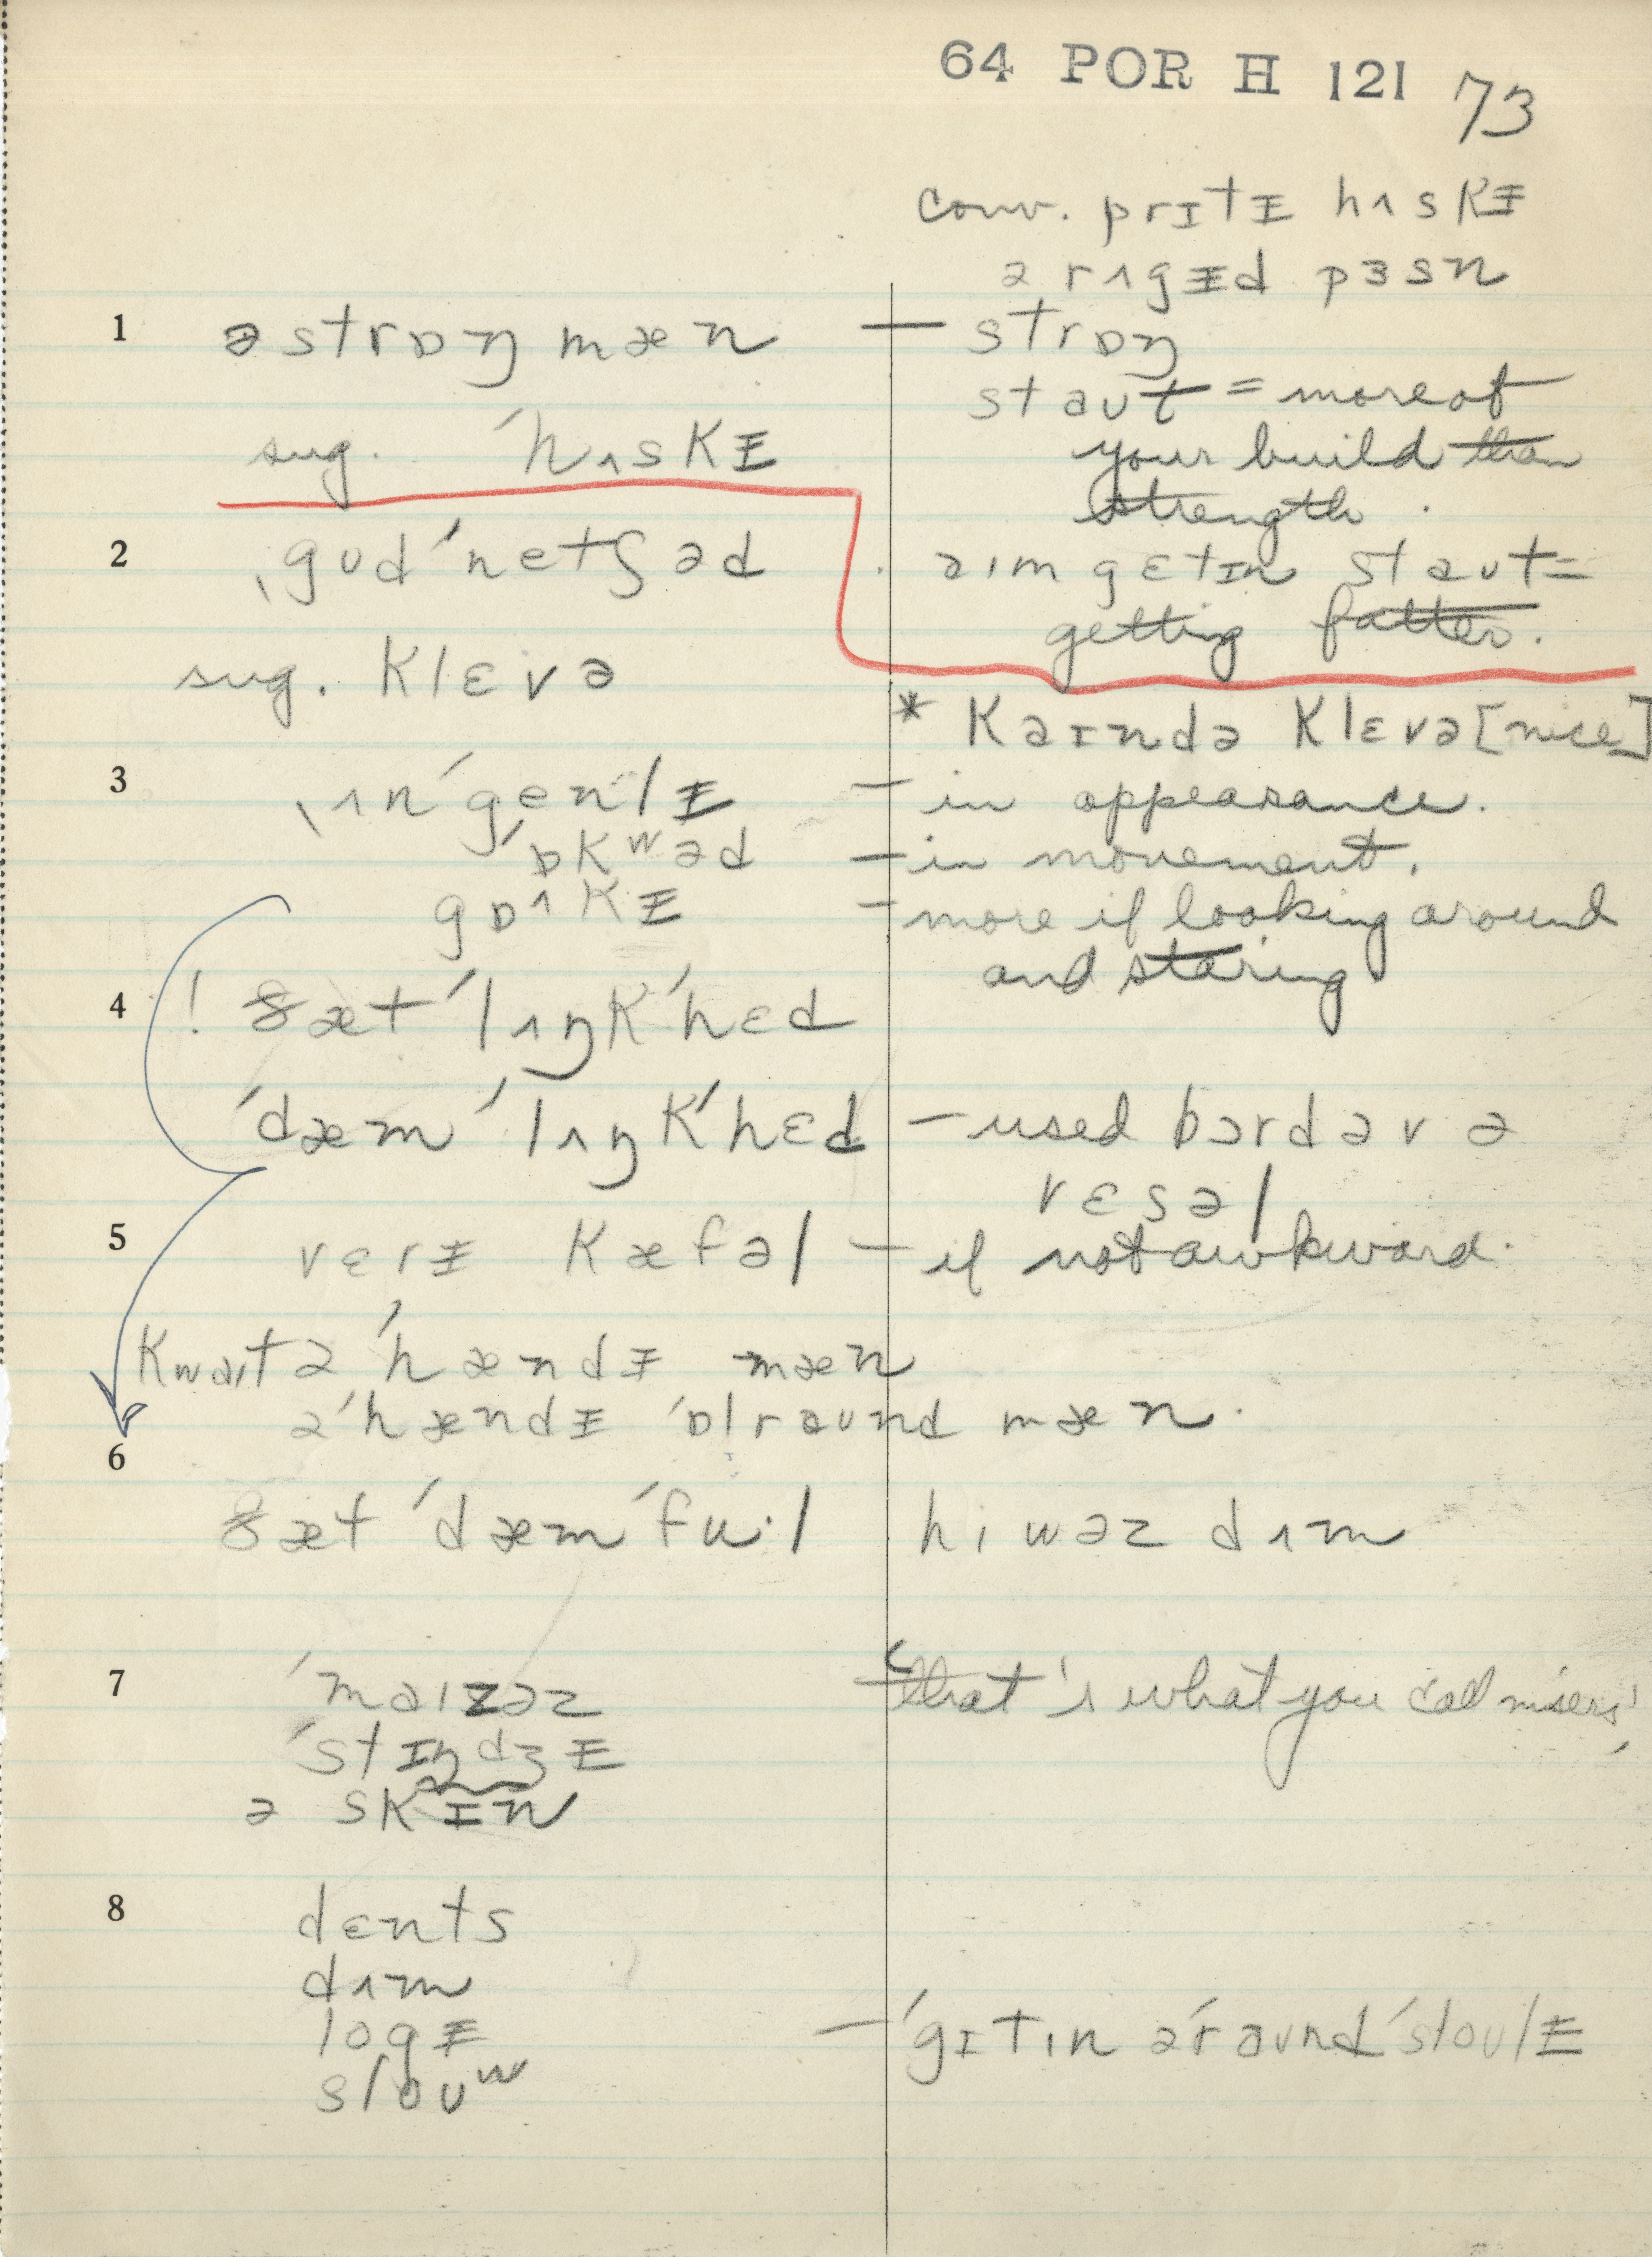 64 POR H 121 73
conv. prɪtᵻ hʌskᵻ
ə rʌgᵻd pɜsn
1 ə strɒŋ mæn — strɒŋ
staʊt = more of
sug. ˈhʌskᵻ your build than
strength.
2 ˌgʊdˈnetʃəd aɪm gɛtɪn staʊt =
getting fatter.
sug. klɛvə
* kaɪndə klɛvə [nice]
3 ˌʌnˈgenlᵻ — in appearance.
ˈɒkʷəd — in movement.
gɒʌkᵻ — more if looking around
and staring
4 ! ðæt ˈlʌŋkˈhɛd
ˈdæm ˈlʌŋkˈhɛd — used bərd əv ə
vɛsəl
5 vɛrᵻ kæfəl — if not awkward.
kwaɪt ə ˈhændᵻ mæn
ə ˈhændᵻ ˈɒlraʊnd mæn.
6
ðæt ˈdæm ˈfuːl hi wəz dʌm
7 ˈmaɪzəz — ‘that's what you call misers’
ˈstɪndʒᵻ
ə skɪn
8 dɛnts
dʌm
logᵻ — ˈgɪtɪn əˈraʊnd ˈsloʊlᵻ
sloʊʷ